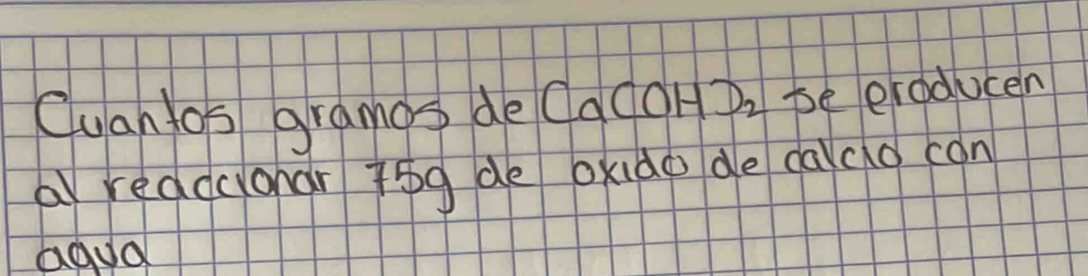 Cuantos gramos de Ca(OH)₂ se producen
al reaccionar 75g de oxido de calcio con
agua